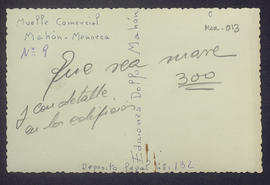 Muelle Comercial
Mahón-Menorca
Nº 9
Men-013
Que sea mare
300
y con detalle
en los edificios
Ediciones Dolfo Mahón
Deposito Legal
132